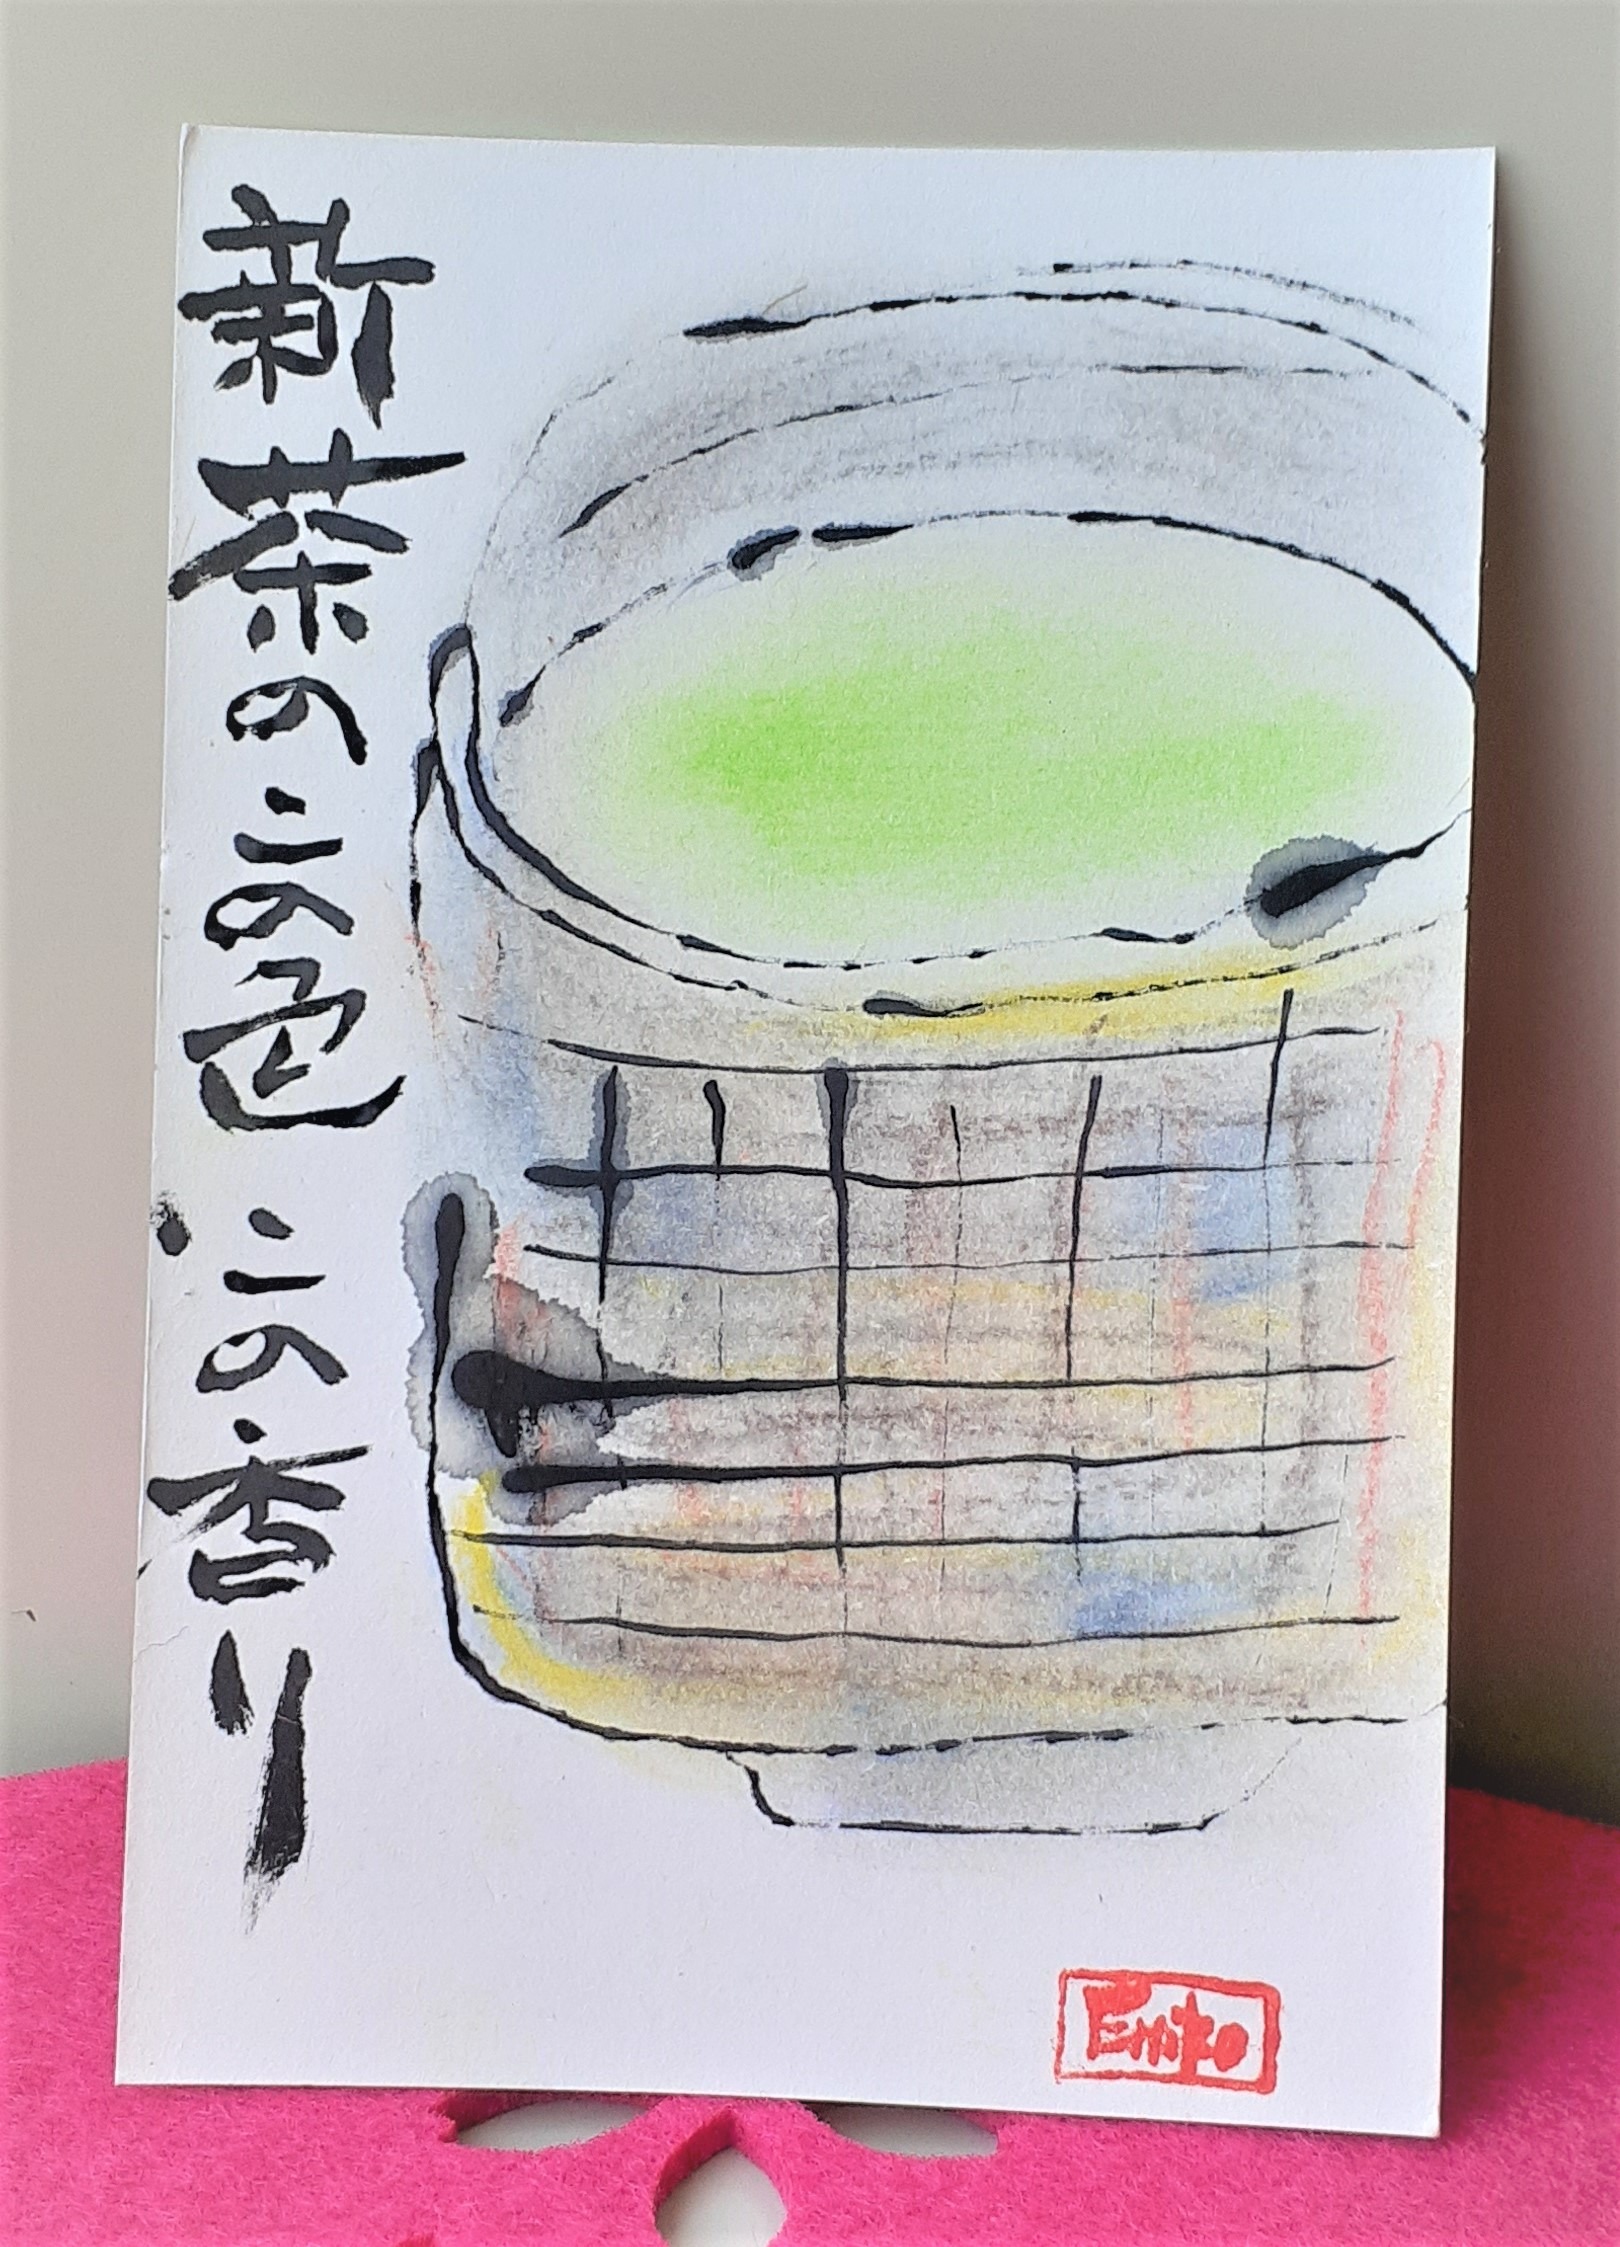 新茶のこの色この香り
Emiko